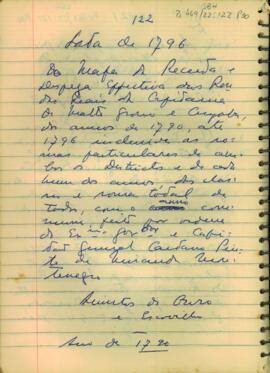 122
Data de 1796
Do Mapa da Receita e
Despeza Effectiva das Ren
das Reais da Capitania
de Matto Grosso e Cuyabá,
do annos de 1790, até
1796 inclusive as so-
mas particulares de am-
bos os Destrictos e de cada
hum dos annos. Da
e soma total de
todos, com o anno com-
mum feito por ordem
do Ex.mo Gov.dor e Capi-
tão General Caetano Pin-
to de Miranda Monte-
negro
Quintos do Ouro
e Escovilha
Ano de 1790